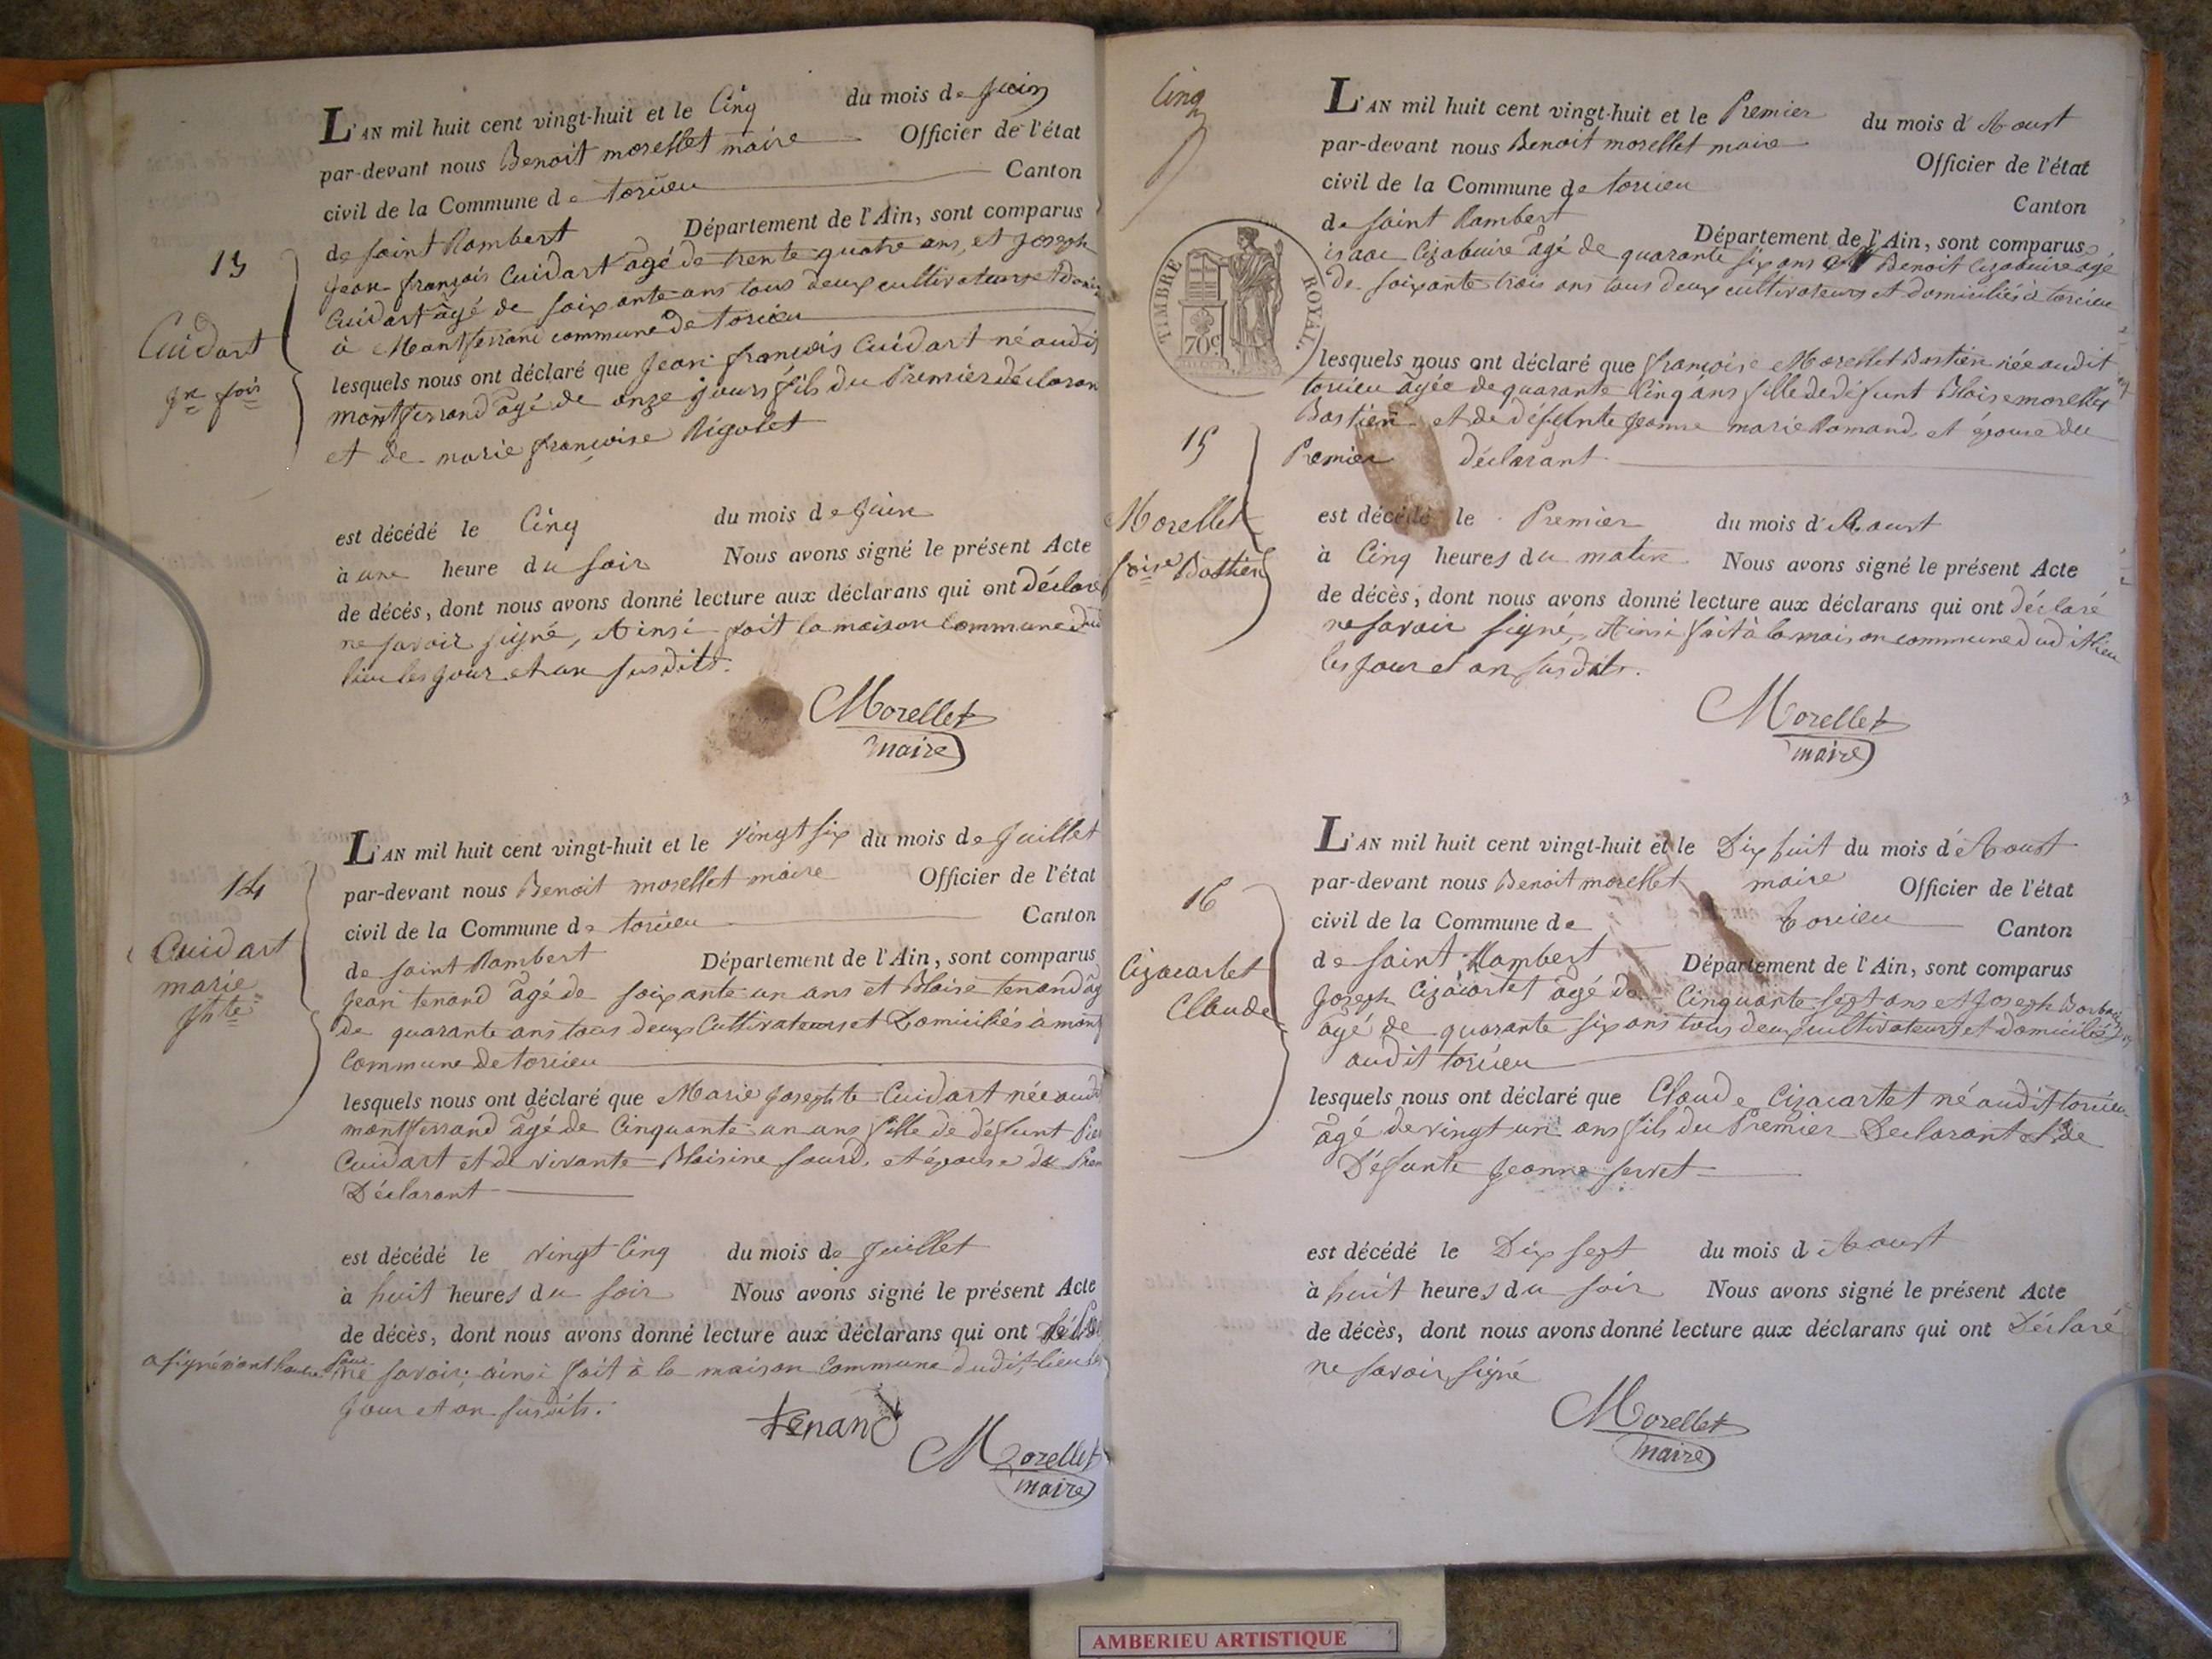 L'AN mil huit cent vingt-huit et le Cinq du mois de Juin
par-devant nous Benoit morellet maire Officier de l'état
civil de la Commune de torcieu Canton
de saint Rambert Département de l'Ain, sont comparus
13
Jean françois Cuidart âgé de trente quatre ans, et Joseph
Cuidart âgé de soixante ans tous deux cultivateurs et
à Montferrand commune de torcieu
Cuidart
jn fois
lesquels nous ont déclaré que Jean françois Cuidart né audit
montferrand âgé de onze jours fils du Premier déclaran
et de marie françoise Rigolet
est décédé le Cinq du mois de Juin
à une heure du soir Nous avons signé le présent Acte
de décès, dont nous avons donné lecture aux déclarans qui ont déclaré
ne savoir signé, Ainsi fait la maison commune dud
lieu les jour et an susdits.
Morellet
maire
L'AN mil huit cent vingt-huit et le vingt six du mois de Juillet
14
par-devant nous Benoit morellet maire Officier de l'état
civil de la Commune de torcieu Canton
Cuidart
marie
jhte
de saint Rambert Département de l'Ain, sont comparus
Jean tenand âgé de soixante un ans et Blaise tenand âg
de quarante ans tous deux Cultivateurs et Domiciliés à mont
Commune de torcieu
lesquels nous ont déclaré que Marie Josephte Cuidart née audi
montferrand âgé de Cinquante un ans fille de défunt Pier
Cuidart et de vivante Blaisine sourd, et épouse du Prem
Déclarant
est décédé le vingt Cinq du mois de Juillet
à huit heures du soir Nous avons signé le présent Acte
de décès, dont nous avons donné lecture aux déclarans qui ont
a signé non l'autre pour ne savoir; ainsi fait à la maison Commune dudit lieu les
Jour et an susdits.
tenand
Morellet
maire
Cinq
L'AN mil huit cent vingt-huit et le Premier du mois d'Aoust
par-devant nous Benoit morellet maire Officier de l'état
civil de la Commune de torcieu Canton
de saint Rambert Département de l'Ain, sont comparus
TIMBRE ROYAL.
70c
isaac Cizabuire âgé de quarante six ans et Benoit Cizabuire âgé
de soixante trois ans tous deux cultivateurs et domiciliés à torcieu
lesquels nous ont déclaré que françoise Morellet Bastien née audit
torcieu âgée de quarante Cinq ans fille de défunt Blaise morellet
Bastien et de défunte Jeanne marie Romand, et épouse du
Premier déclarant
15
Morellet
foise Bastien
est décédé le Premier du mois d'Aoust
à Cinq heures du matin Nous avons signé le présent Acte
de décès, dont nous avons donné lecture aux déclarans qui ont déclaré
ne savoir signé, Ainsi fait à la maison commune dudit lieu
les Jour et an susdits.
Morellet
maire
L'AN mil huit cent vingt-huit et le Dix huit du mois d'Aoust
16
par-devant nous Benoit morellet maire Officier de l'état
civil de la Commune de torcieu Canton
Cizacartet
Claude
de saint Rambert Département de l'Ain, sont comparus
Joseph Cizacartet âgé de Cinquante sept ans et Joseph
âgé de quarante six ans tous deux cultivateurs et domiciliés
audit torcieu
lesquels nous ont déclaré que Claude Cizacartet né audit torcieu
âgé de vingt un ans fils du Premier Declarant et de
Défunte Jeanne servet
est décédé le Dix sept du mois d'Aoust
à huit heures du soir Nous avons signé le présent Acte
de décès, dont nous avons donné lecture aux déclarans qui ont Déclaré
ne savoir signé
Morellet
maire
AMBERIEU ARTISTIQUE